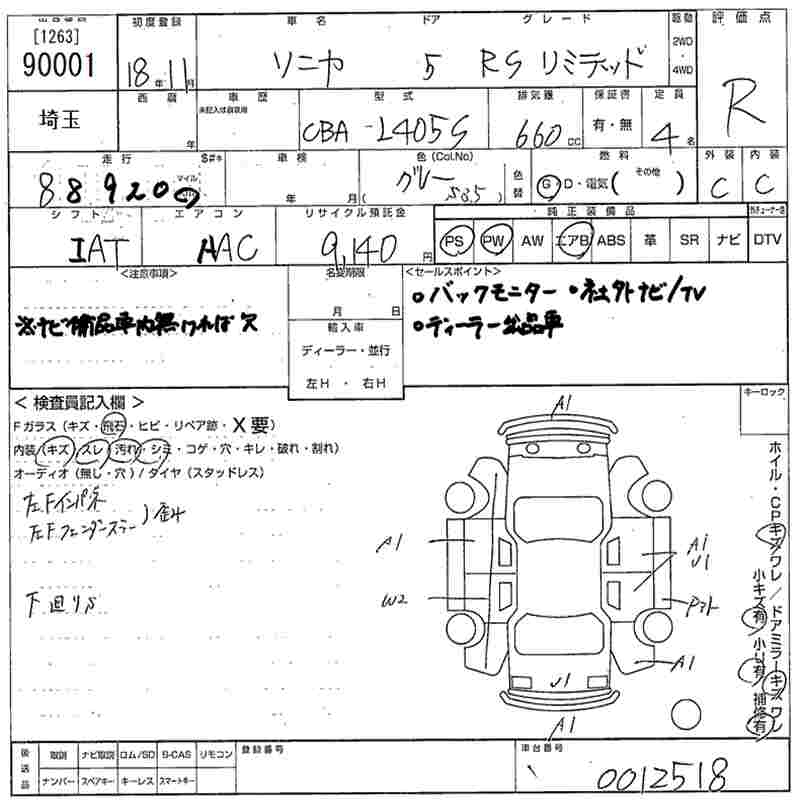 出品番号 初度登録 車名 ドア グレード 駆動 評価点
[1263]
90001 18年11月 ソニカ 5 RS リミテッド 2WD ・ 4WD R
埼玉 西暦 年 車歴 未記入は自家用 型式 CBA-L405S 排気量 660cc 保証書 有・無 定員 4名
走行 88920 マイル km $#* 車検 年 月 色(Col.No) グレー S05 色替 燃料 G・D・電気( その他 ) 外装 C 内装 C
シフト IAT エアコン AAC リサイクル預託金 9,140円 純正装備品
PS PW AW エアB ABS 革 SR ナビ DTV
<注意事項> 名変期限 <セールスポイント>
月 日
・バックモニター ・社外ナビ/TV
※ナビ備品車内無ければ欠 輸入車 ・ディーラー出品車
ディーラー・並行
左H ・ 右H
キーロック
< 検査員記入欄 >
Fガラス (キズ・飛石・ヒビ・リペア跡・X要)
内装 (キズ・スレ・汚れ・シミ・コゲ・穴・キレ・破れ・割れ)
オーディオ (無し・穴) / タイヤ (スタッドレス)
左Fインパネ
左Fフェンダーステー ) 歪み
下廻りS
A1
A1
W2
A1
U1
A1
U1
A1
ホイル・CPキズワレ / ドアミラーキズワレ
小キズ有 小U有 補修有
後送品 取説 ナビ取説 ロム/SD B-CAS リモコン 登録番号 車台番号
ナンバー スペアキー キーレス スマートキー 0012518